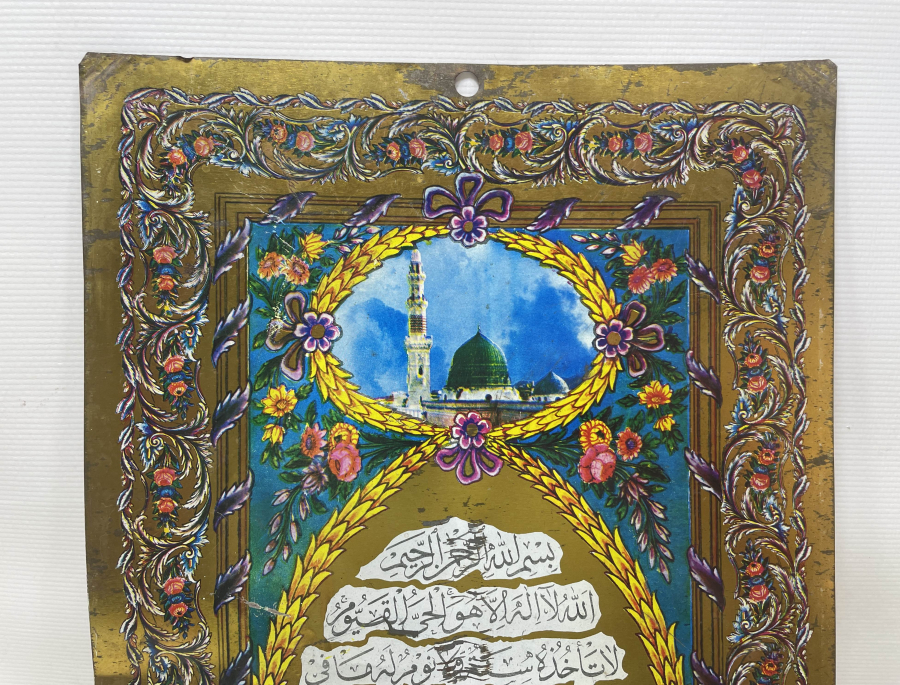 بسم الله الرحمن الرحيم
الله لا اله الا هو الحي القيوم
لا تأخذه سنة ولا نوم له ما في